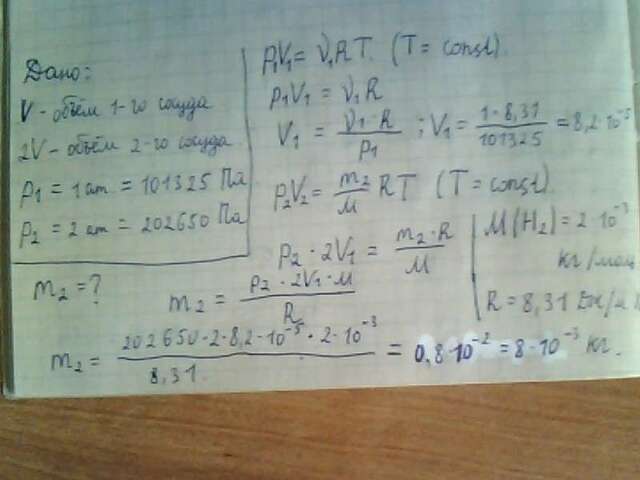 Дано:
V - объём 1-го сосуда
2V - объём 2-го сосуда
p₁ = 1 ат = 101325 Па
p₂ = 2 ат = 202650 Па
m₂ = ?
p₁V₁ = ν₁RT (T = const).
p₁V₁ = ν₁R
V₁ = ν₁·R / p₁ ; V₁ = 1·8,31 / 101325 = 8,2·10⁻⁵
p₂V₂ = m₂/M RT (T = const)
p₂·2V₁ = m₂·R / M
M(H₂) = 2·10⁻³
кг/мол
R = 8,31 Дж/
m₂ = p₂·2V₁·M / R
m₂ = 202650·2·8,2·10⁻⁵·2·10⁻³ / 8,31 = 0,8·10⁻² = 8·10⁻³ кг.